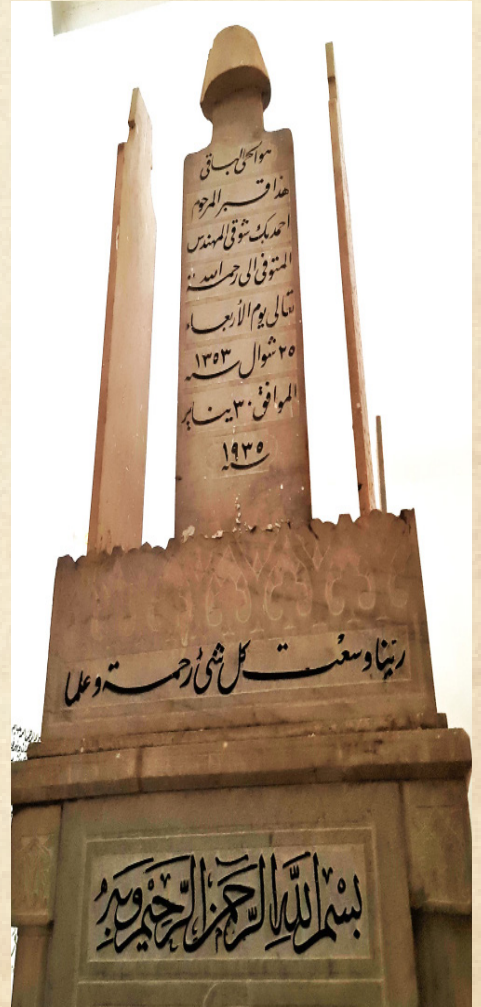 هو الحي الباقي
هذا قبر المرحوم
احمد بك شوقي المهندس
المتوفى الى رحمة الله
تعالى يوم الأربعاء
٢٥ شوال سنة ١٣٥٣
الموافق ٣٠ يناير
سنة ١٩٣٥
ربنا وسعت كل شئ رحمة وعلما
بسم الله الرحمن الرحيم وبه